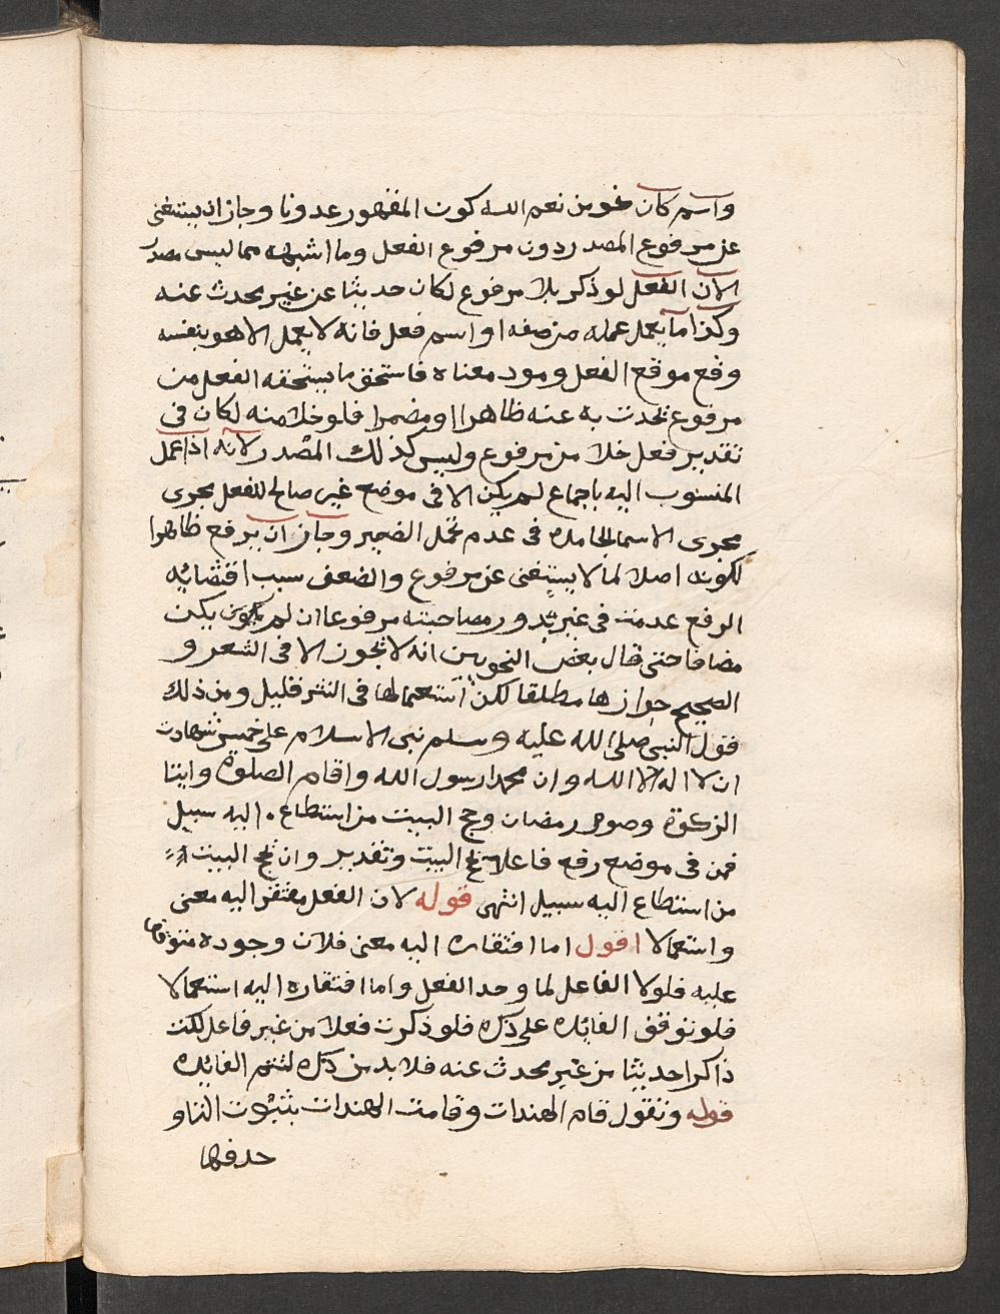 واسم كان نحو من نعم الله كون المقهور عدونا وجاز ان يستغنى
عن مرفوع المصدر دون مرفوع الفعل وما اشبهه مما ليس مصدر
لان الفعل لو ذكر بلا مرفوع لكان حديثا عن غير محدث عنه
وكذا ما يعمل عمله من صفه او اسم فعل فانه لا يعمل الا هو بنفسه
وقع موقع الفعل ومود معناه فاستحق ما يستحقه الفعل من
مرفوع يحدث به عنه ظاهرا او مضمرا فلو خلا منه لكان فى
تقدير فعل خلا من مرفوع وليس كذلك المصدر لانه اذا عمل
المنسوب اليه باجماع لم يكن الا فى موضع غير صالح للفعل يجرى
مجرى الاسما الجامده فى عدم تحمل الضمير وجاز ان يرفع ظاهرا
لكونه اصلا لما لا يستغنى عن مرفوع والضعف سبب اقتضائه
الرفع عدمت فى غير ومصاحبته مرفوعا ان لم يكن
مضافا حتى قال بعض النحويين انه لا تجوز الا فى الشعر و
الصحيح جوازها مطلقا لكن استعمالها فى النثر قليل ومن ذلك
قول النبى صلى الله عليه وسلم نبى الاسلام على خمس شهادت
ان لا اله الا الله وان محمدا رسول الله واقام الصلوة وايتا
الزكوة وصوم رمضان وحج البيت من استطاع اليه سبيل
فمن فى موضع رفع فاعلا بحج البيت وتقدير وان يحج البيت
من استطاع اليه سبيل انتهى قوله لان الفعل مفتقر اليه معنى
واستعمالا اقول اما افتقاره اليه معنى فلان وجوده متوقفا
عليه فلولا الفاعل لما وجد الفعل واما افتقاره اليه استعمالا
فلو توقف الفايده على ذكره فلو ذكرت فعلا من غير فاعل لكنت
ذاكرا حديثا من غير محدث عنه فلا بد من ذكره لتتم الفايده
قوله وتقول قام الهندات وقامت الهندات بثبوت التا و
حذفها